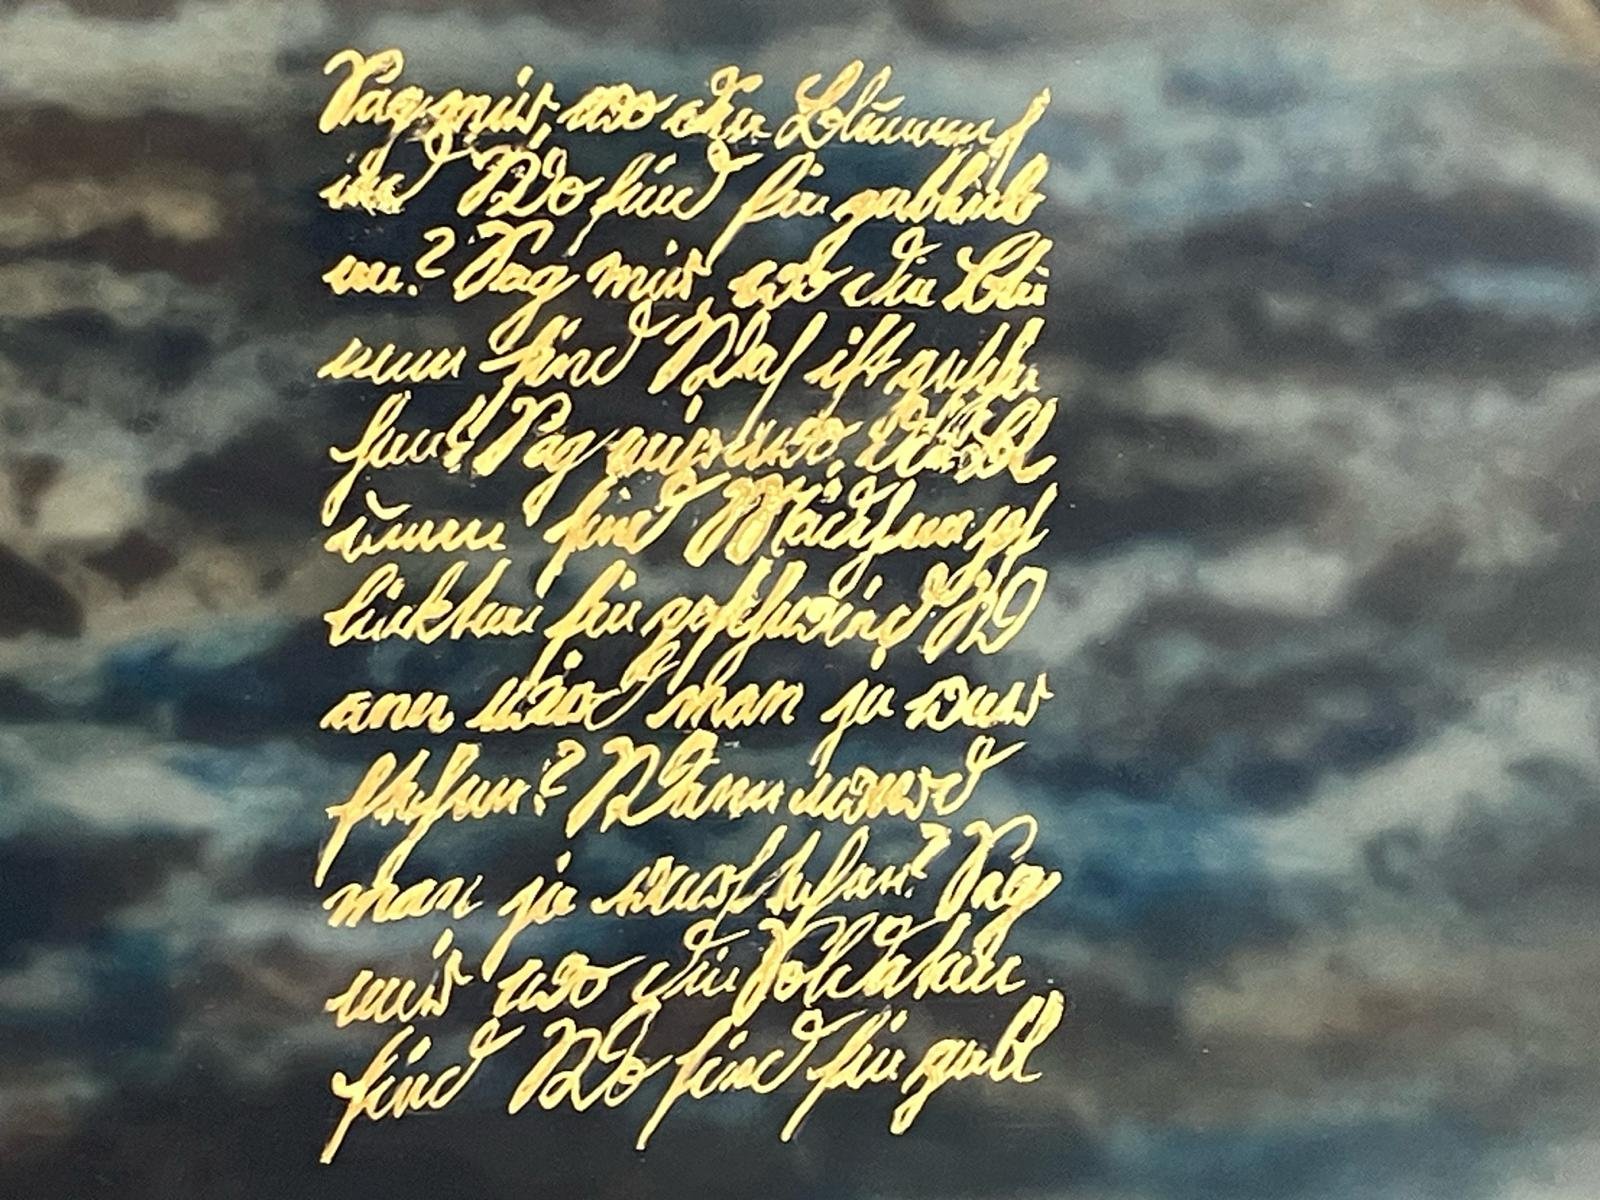 Sag mir, wo die Blumen s
ind Wo sind sie geblieb
en? Sag mir wo die Blu
men sind Was ist gesche
hen? Sag mir wo die Bl
umen sind Mädchen pf
lückten sie geschwind W
ann wird man je ver
stehen? Wann wird
man je verstehen? Sag
mir wo die Soldaten
sind Wo sind sie gebl